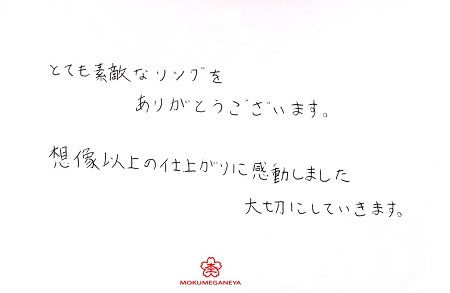 とても素敵なリングを
ありがとうございます。
想像以上の仕上がりに感動しました
大切にしていきます。
MOKUMEGANEYA